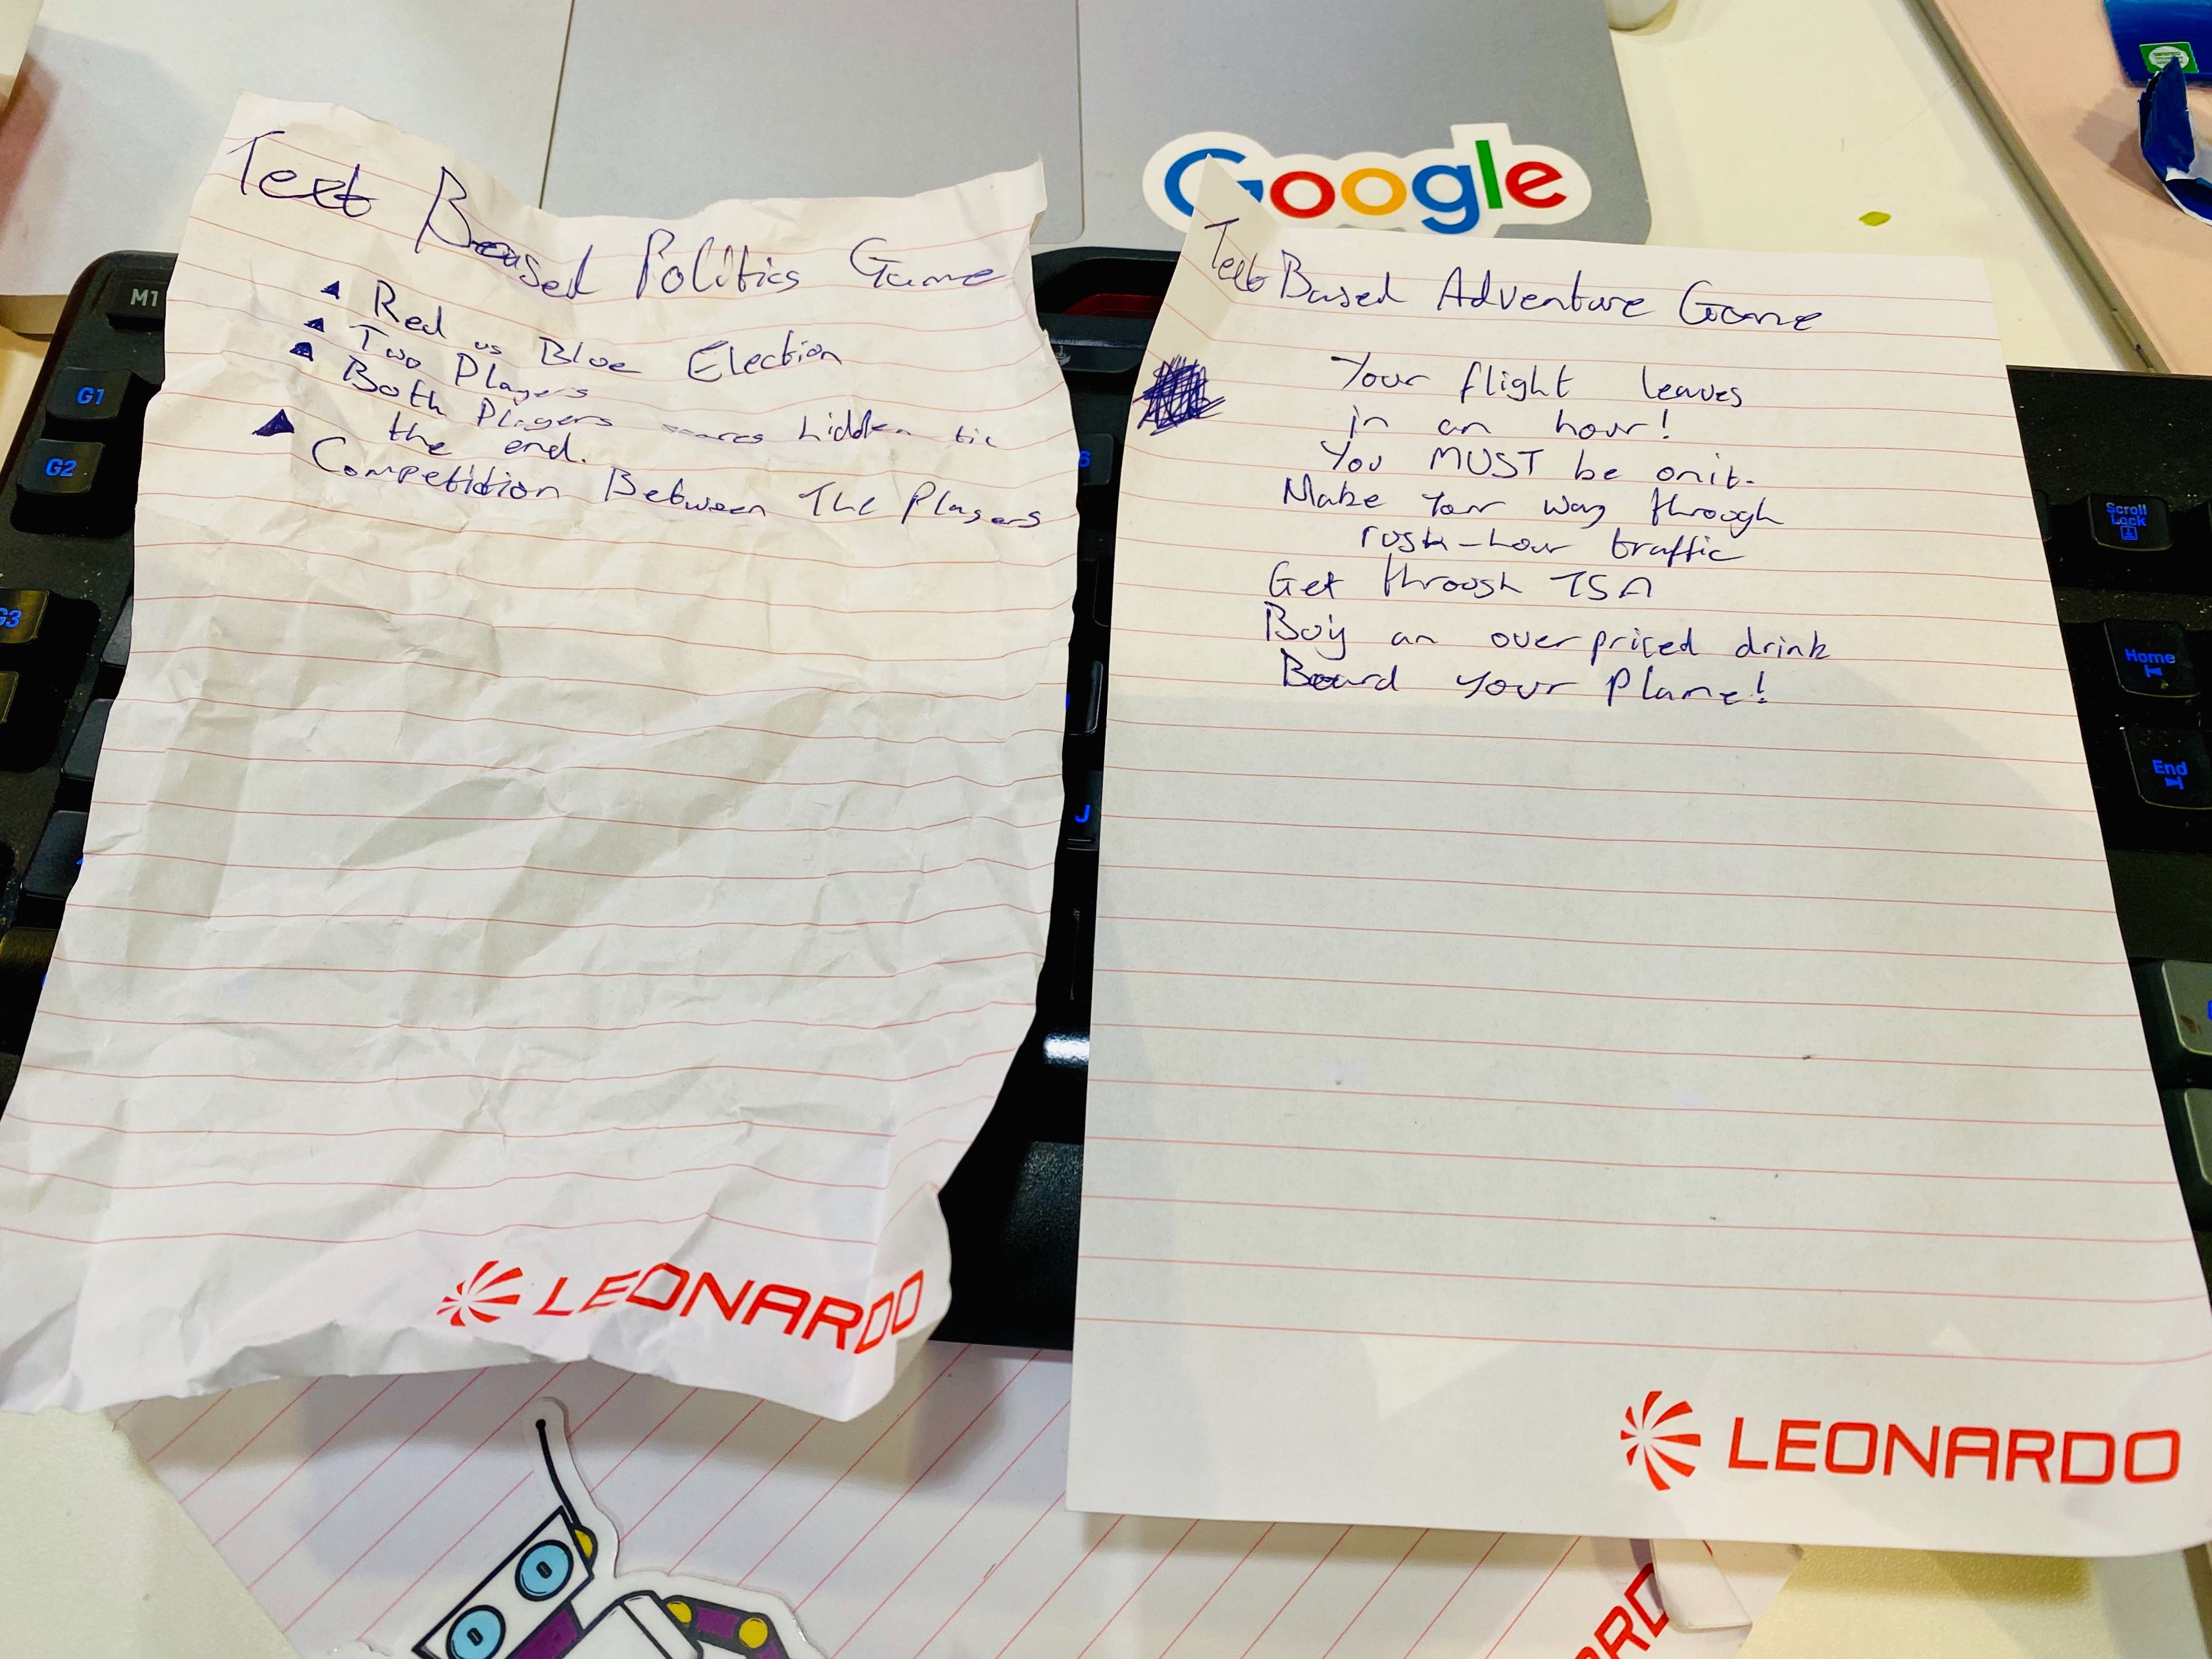 Text Based Politics Game
Red vs Blue Election
Two Players
Both Players scores hidden til
the end.
Competition Between The Players
LEONARDO
Google
Text Based Adventure Game
Your flight leaves
in an hour!
You MUST be onit.
Make Your way through
rush-hour traffic
Get through TSA
Buy an overpriced drink
Board your Plane!
LEONARDO
M1
G1
G2
G3
6
J
Scroll
Lock
Home
End
ARD